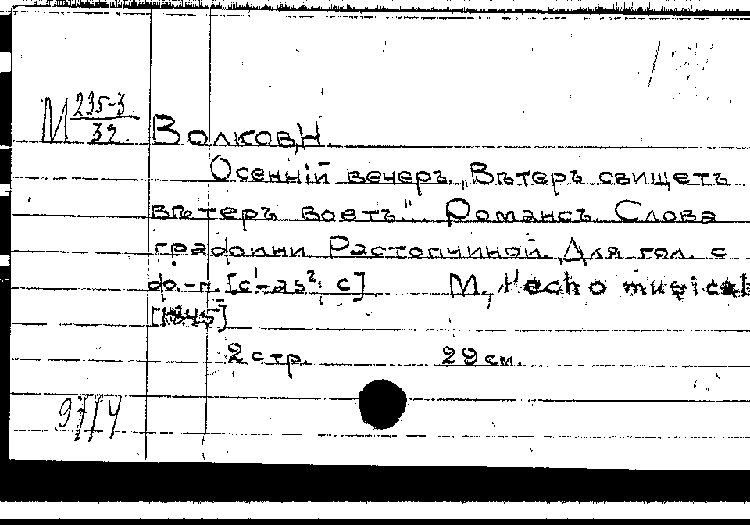 М 235-3/32 Волков, Н.
Осенній вечеръ. „Вѣтеръ свищетъ
вѣтеръ воетъ". Романсъ. Слова
графини Растопчиной. Для гол. с
ф.-п. [c¹-as², c] М., L'echo musical
2 стр. 29 см.